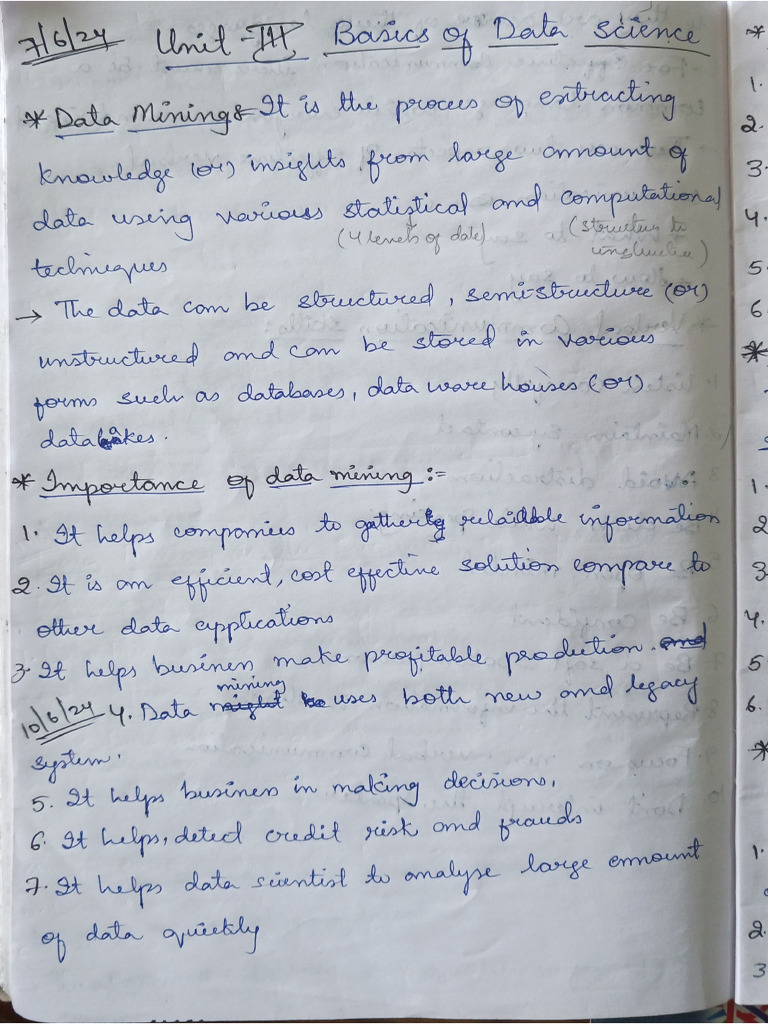 7/6/24 Unit-III Basics of Data Science
* Data Mining:- It is the process of extracting
knowledge (or) insights from large amount of
data using various statistical and computational
(4 levels of date) (structure to
techniques
→ The data can be structured, semistructure (or)
unstructured and can be stored in various
forms such as databases, data ware houses (or)
data lakes.
* Importance of data mining :-
1. It helps companies to gather reliable information
2. It is an efficient, cost effective solution compare to
other data applications
3. It helps business make profitable production. and
mining
10/6/24 4. Data might be uses both new and legacy
system.
5. It helps business in making decisions.
6. It helps, detect credit risk and frauds
7. It helps data scientist to analyse large ammount
of data quickly
*
1.
2.
3.
4.
5.
6.
*
1.
2
3.
4.
5
6.
*
1.
2.
3